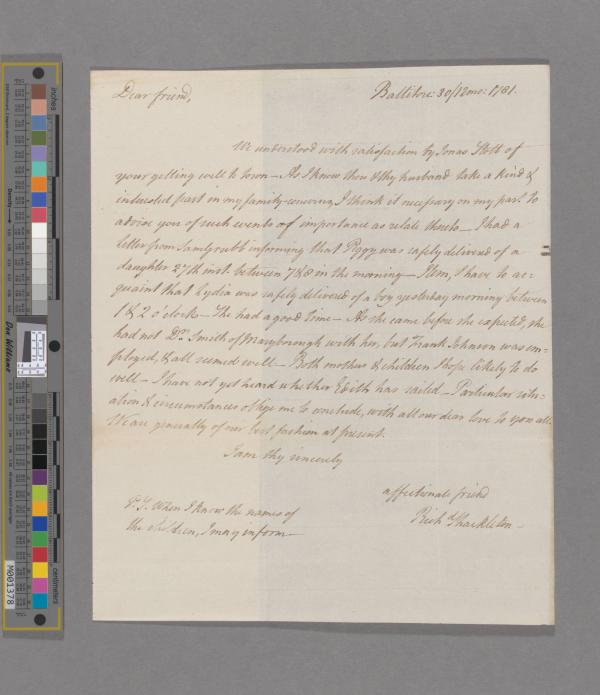 Dear friend,
Ballitore: 30/12mo: 1781.
We understood with satisfaction by Jonas Stott of
your getting well to town – As I know thou & thy husband take a kind &
interested part in my family-concerns, I think it necessary on my part to
advise you of such events of importance as relate thereto – I had a
letter from Saml Grubb informing that Peggy was safely delivered of a
daughter 27th inst. between 7 & 8 in the morning – Item, I have to ac-
quaint that Lydia was safely delivered of a boy yesterday morning between
1 & 2 o'clock – She had a good time – As she came before she expected, she
had not Dr. Smith of Maryborough with her, but Frank Johnson was em-
ployed, & all seemed well – Both mothers & children I hope likely to do
well – I have not yet heard whether Edith has sailed – Particular situ-
ation & circumstances oblige me to conclude, with all our dear love to you all.
We are generally of our best fashion at present.
I am thy sincerely
affectionate friend
Richd Shackleton –
P.S. When I know the names of
the children, I may inform –
inches
centimeters
Don Williams
M001378